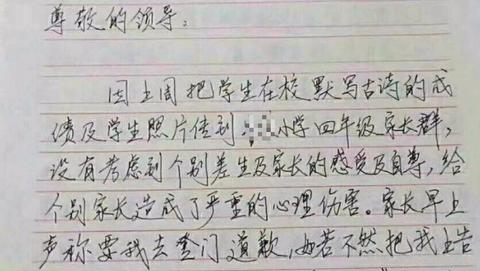 尊敬的领导:
因上周把学生在校默写古诗的成
绩及学生照片传到小学四年级家长群,
没有考虑到个别差生及家长的感受及自尊,给
个别家长造成了严重的心理伤害。家长早上
声称要我去登门道歉,如若不然把我上告